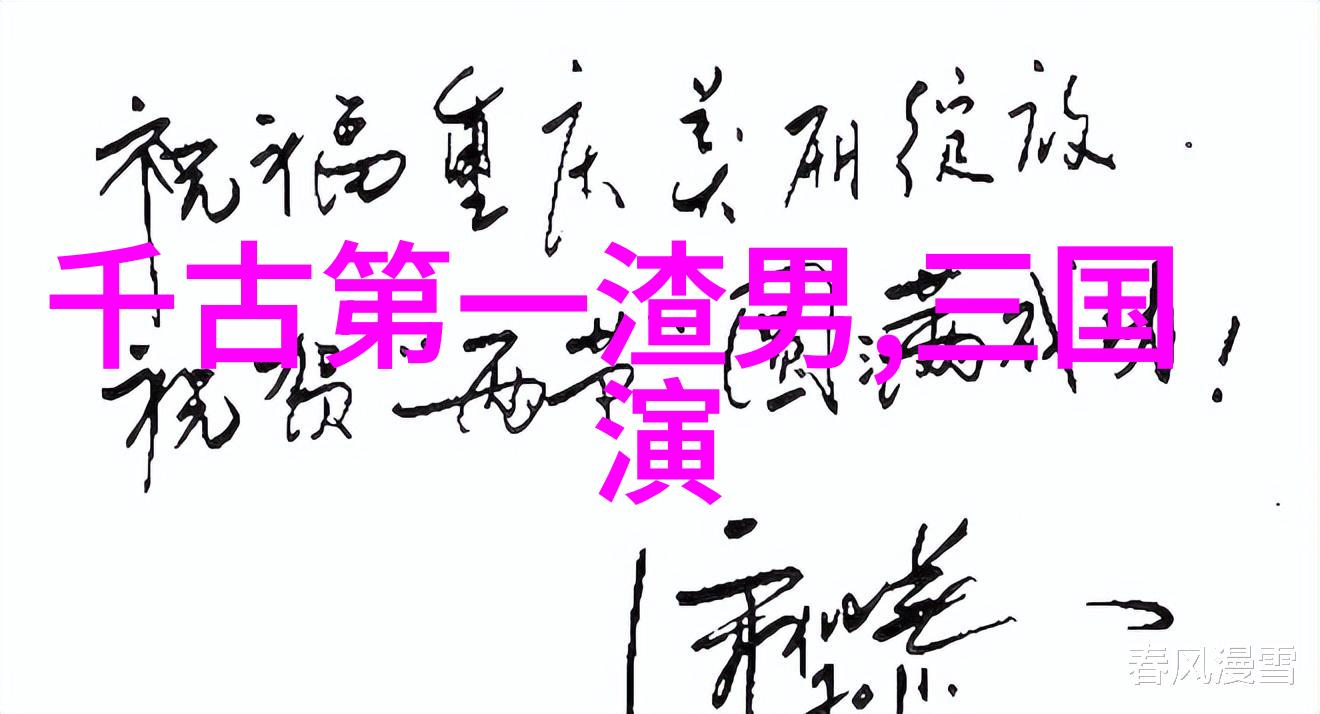 祝福重庆美丽绽放.
千古第一渣男,三国
祝贺两节圆满成功!
演
2011.
春风漫雪